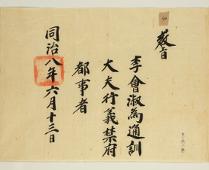 敎旨
李會淑爲通訓
大夫行義禁府
都事者
同治八年六月十三日